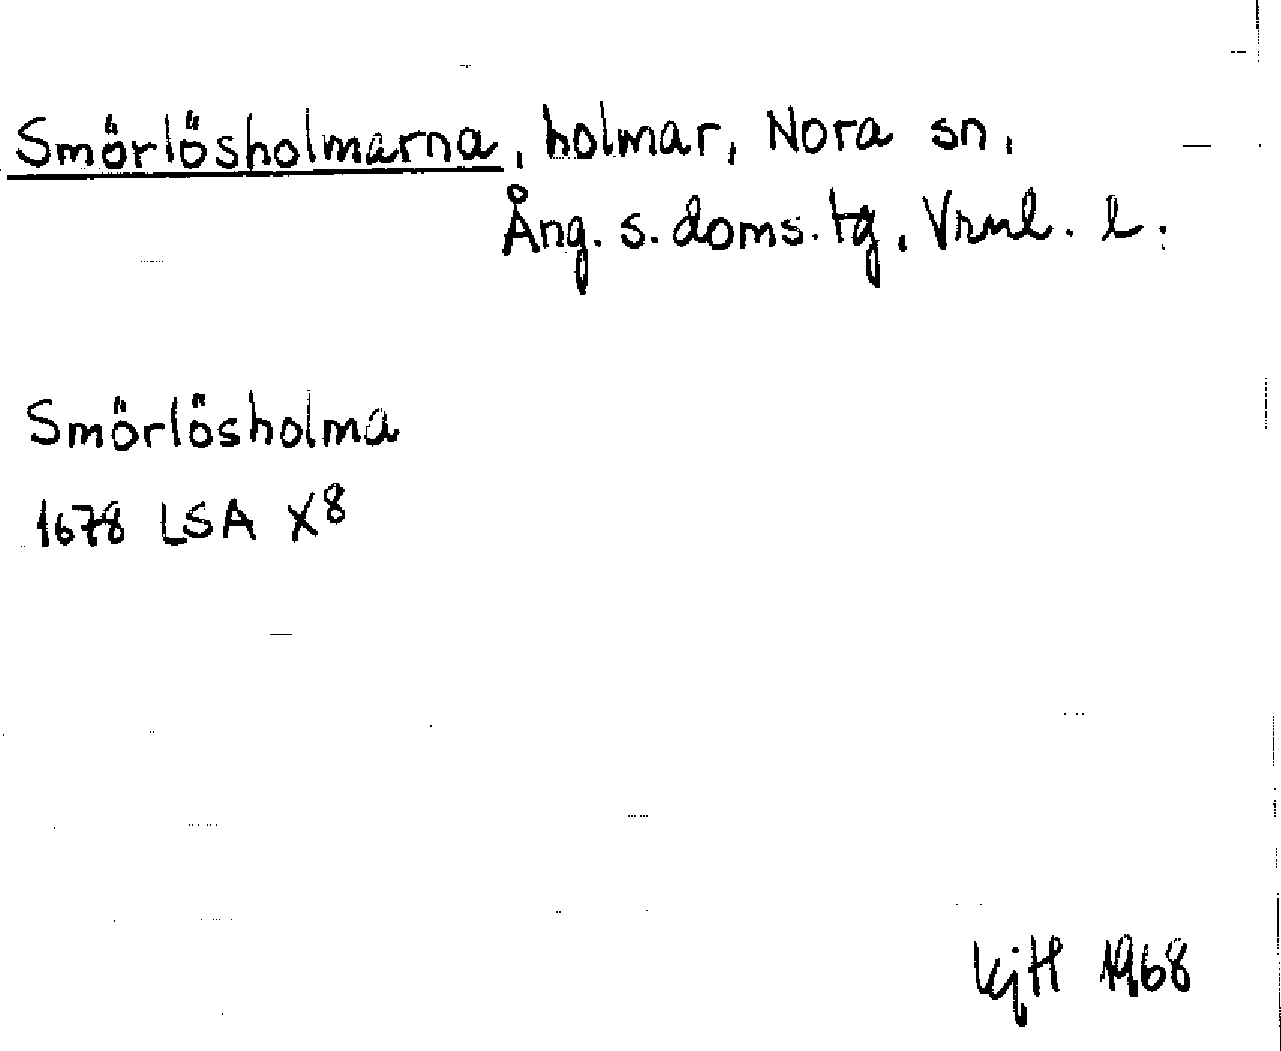 Smörlösholmarna, holmar, Nora sn,
Ång. s. doms. tg, Vrnl. l.
Smörlösholma
1678 LSA X8
KjH 1968